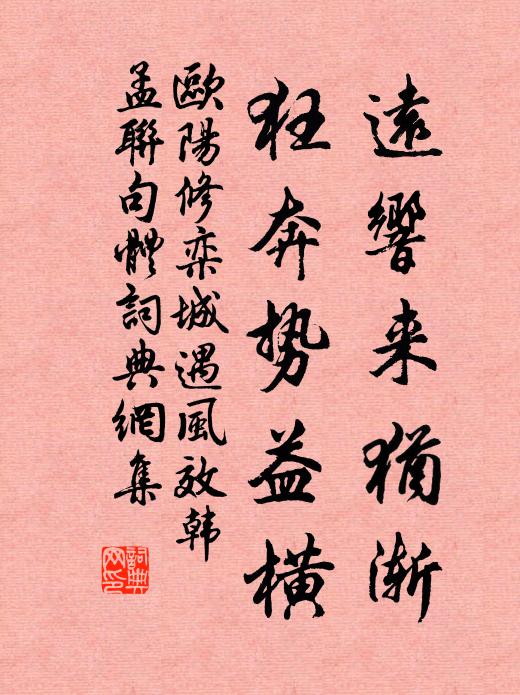 遠響来猶漸
狂奔势益横
歐陽修栾城遇風效韩
孟聯句體詞典網集
詞典网印